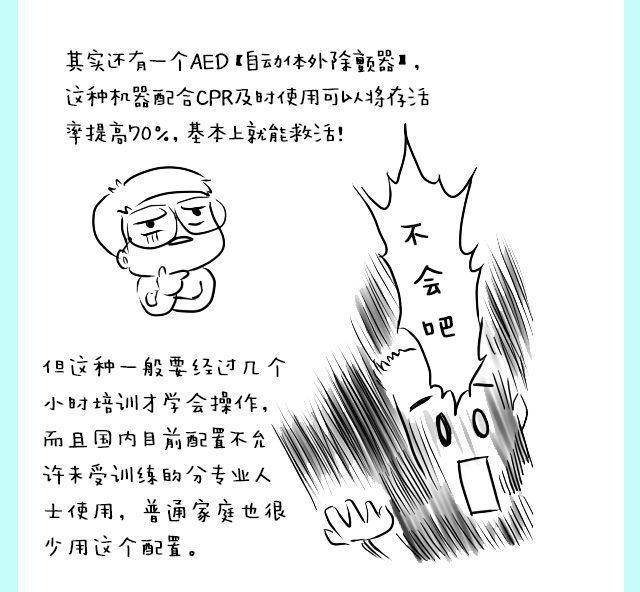 其实还有一个AED【自动体外除颤器】，
这种机器配合CPR及时使用可以将存活
率提高70%，基本上就能救活！
不会吧
但这种一般要经过几个
小时培训才学会操作，
而且国内目前配置不允
许未受训练的分专业人
士使用，普通家庭也很
少用这个配置。